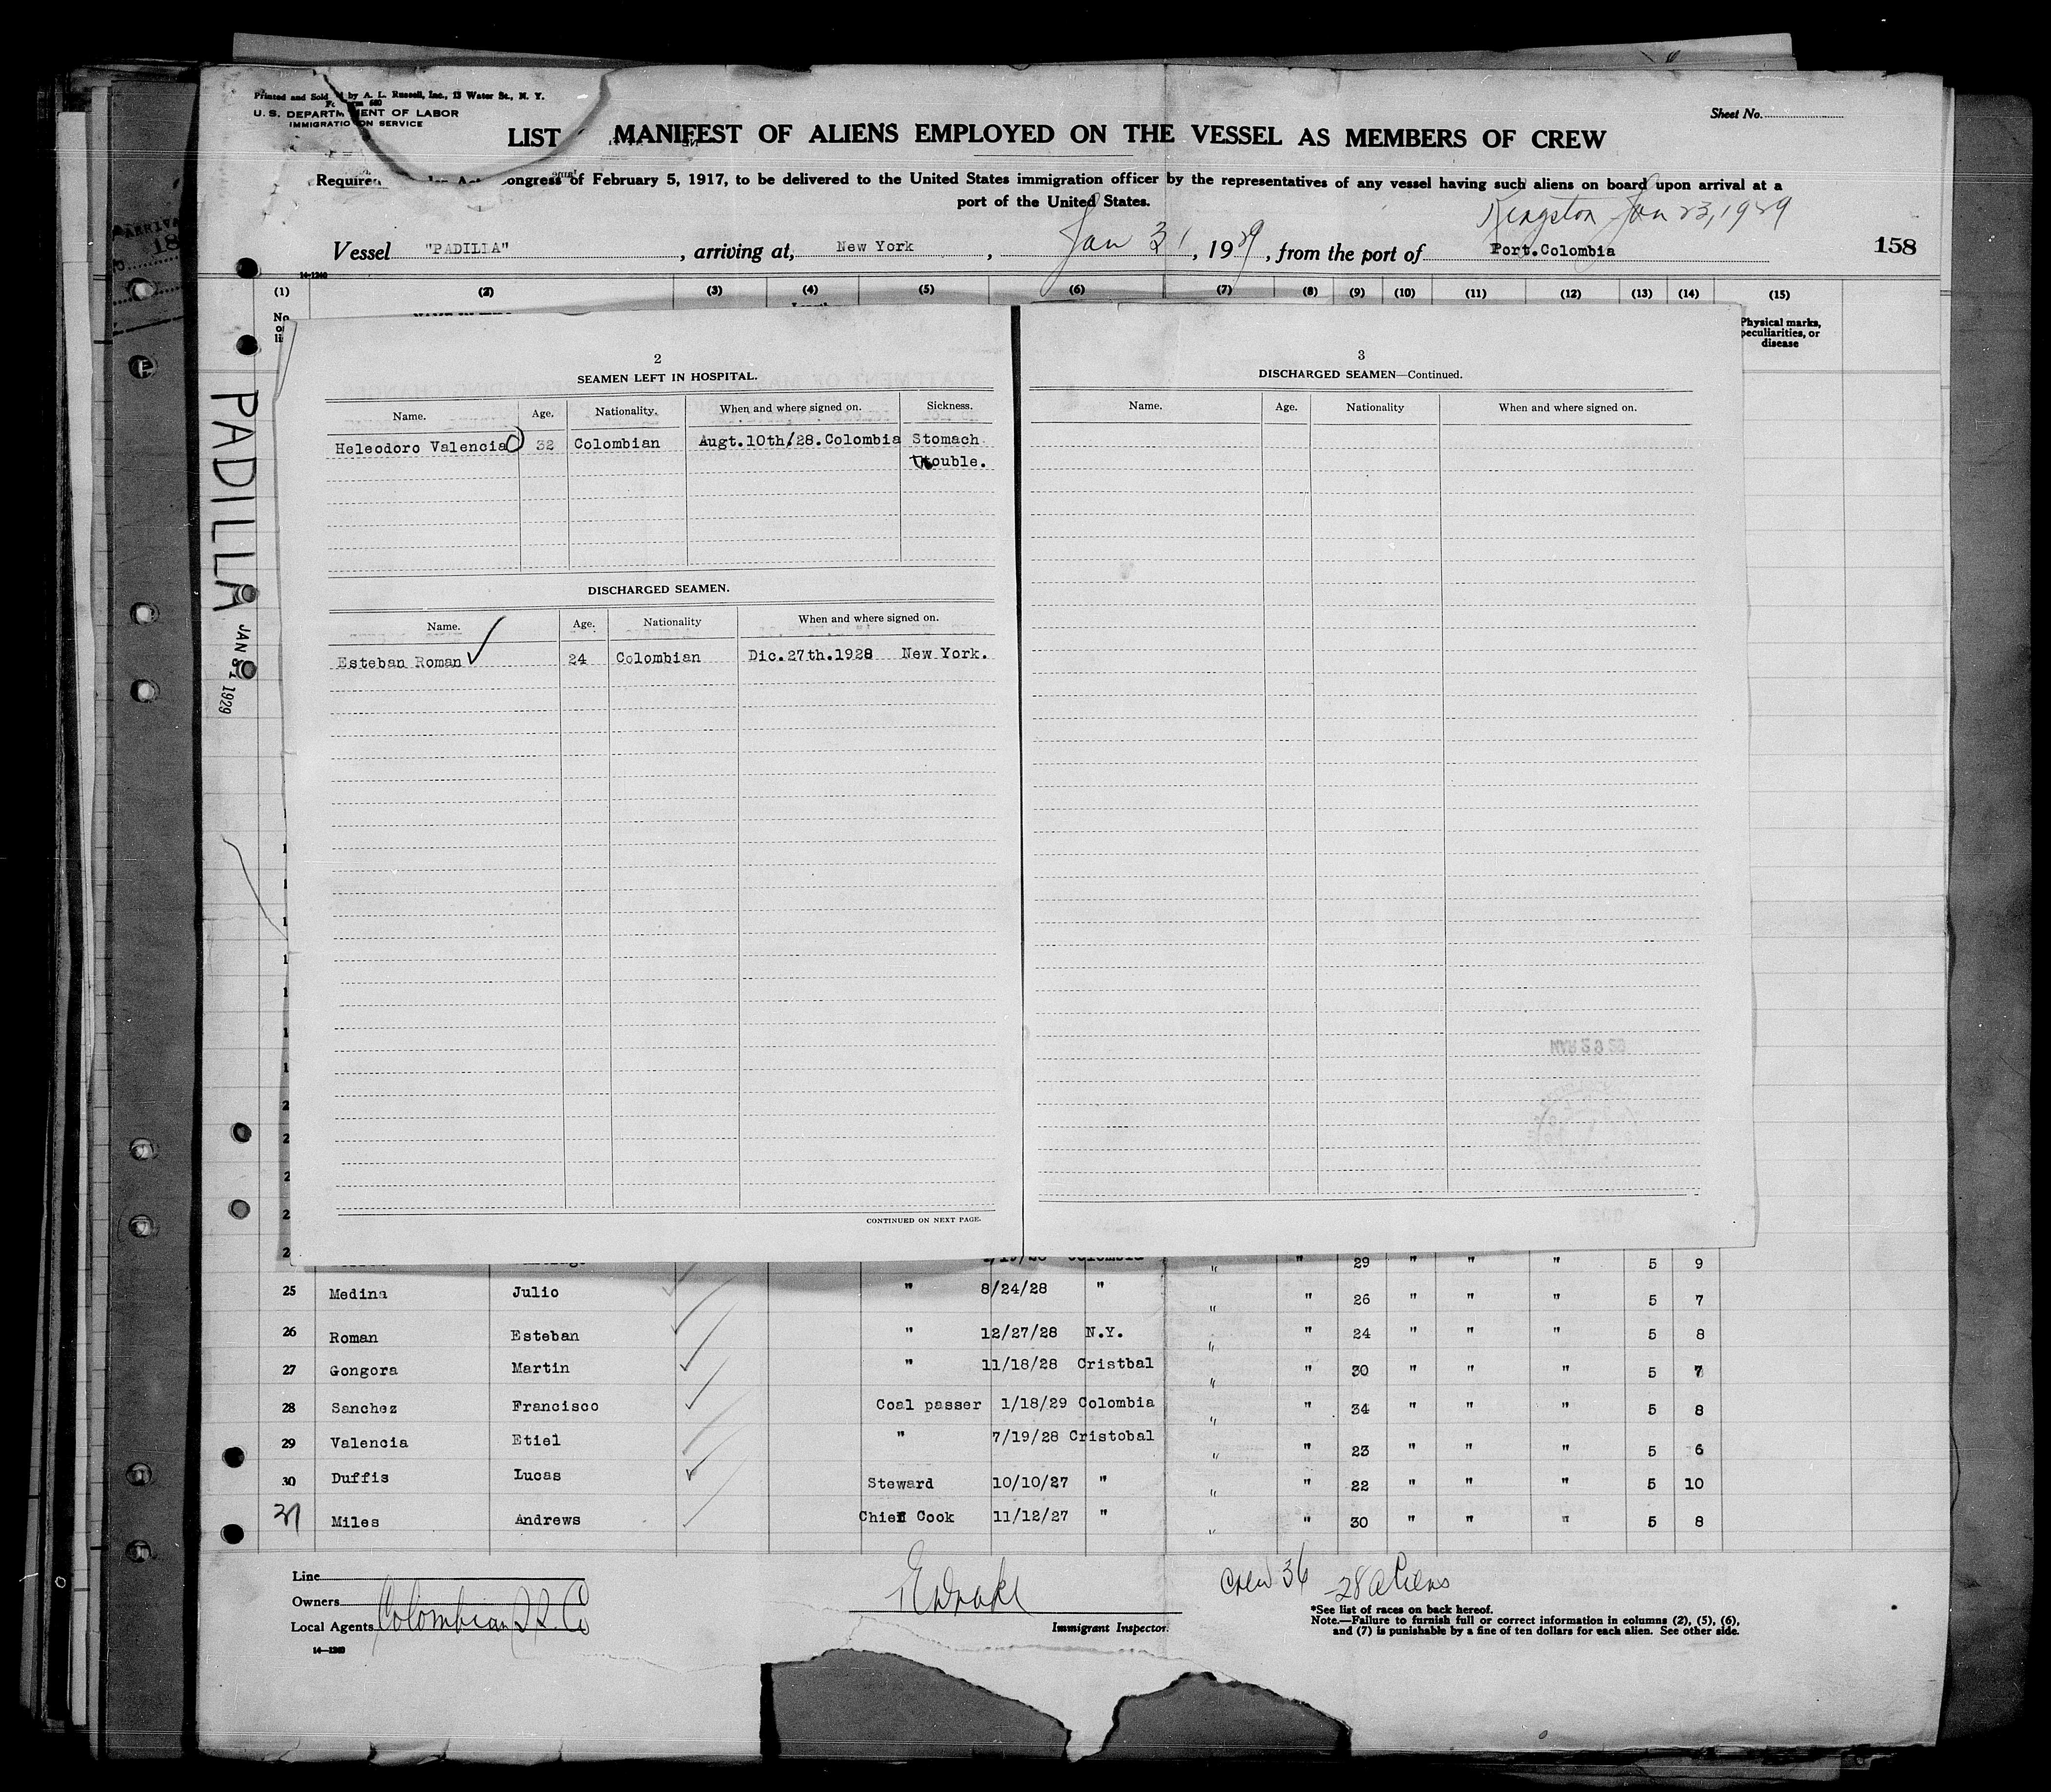 Printed and Sold by A. L. Russell, Inc., 13 Water St., N. Y.
U. S. DEPARTMENT OF LABOR
IMMIGRATION SERVICE
Sheet No.
LIST MANIFEST OF ALIENS EMPLOYED ON THE VESSEL AS MEMBERS OF CREW
Required Congress of February 5, 1917, to be delivered to the United States immigration officer by the representatives of any vessel having such aliens on board upon arrival at a
port of the United States.
Kingston Jan 23, 1929
Vessel "PADILLA", arriving at, New York, Jan 31, 1929, from the port of Port.Colombia
158
14-1240
(1) (2) (3) (4) (5) (6) (7) (8) (9) (10) (11) (12) (13) (14) (15)
Physical marks, peculiarities, or disease
PADILLA
JAN 31 1929
2
SEAMEN LEFT IN HOSPITAL.
Name. Age. Nationality. When and where signed on. Sickness.
Heleodoro Valencia 32 Colombian Augt.10th/28.Colombia Stomach
trouble.
DISCHARGED SEAMEN.
Name. Age. Nationality When and where signed on.
Esteban Roman 24 Colombian Dic.27th.1928 New York.
CONTINUED ON NEXT PAGE.
3
DISCHARGED SEAMEN—Continued.
Name. Age. Nationality When and where signed on.
29 " " " 5 9
25 Medina Julio " 8/24/28 " " " 26 " " " 5 7
26 Roman Esteban " 12/27/28 N.Y. " " 24 " " " 5 8
27 Gongora Martin " 11/18/28 Cristbal " " 30 " " " 5 7
28 Sanchez Francisco Coal passer 1/18/29 Colombia " " 34 " " " 5 8
29 Valencia Etiel " 7/19/28 Cristobal " " 23 " " " 5 6
30 Duffis Lucas Steward 10/10/27 " " " 22 " " " 5 10
31 Miles Andrews Chief Cook 11/12/27 " " " 30 " " " 5 8
Line
Owners
Local Agents Colombian S.S. Co
14—1240
Immigrant Inspector.
Crew 36 - 28 aliens
*See list of races on back hereof.
Note.—Failure to furnish full or correct information in columns (2), (5), (6),
and (7) is punishable by a fine of ten dollars for each alien. See other side.